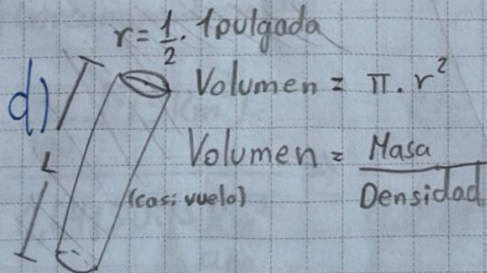 r = 1/2 . 1 pulgada
d)
Volumen = π . r²
L
Volumen = Masa / Densidad
(casi vuelo)